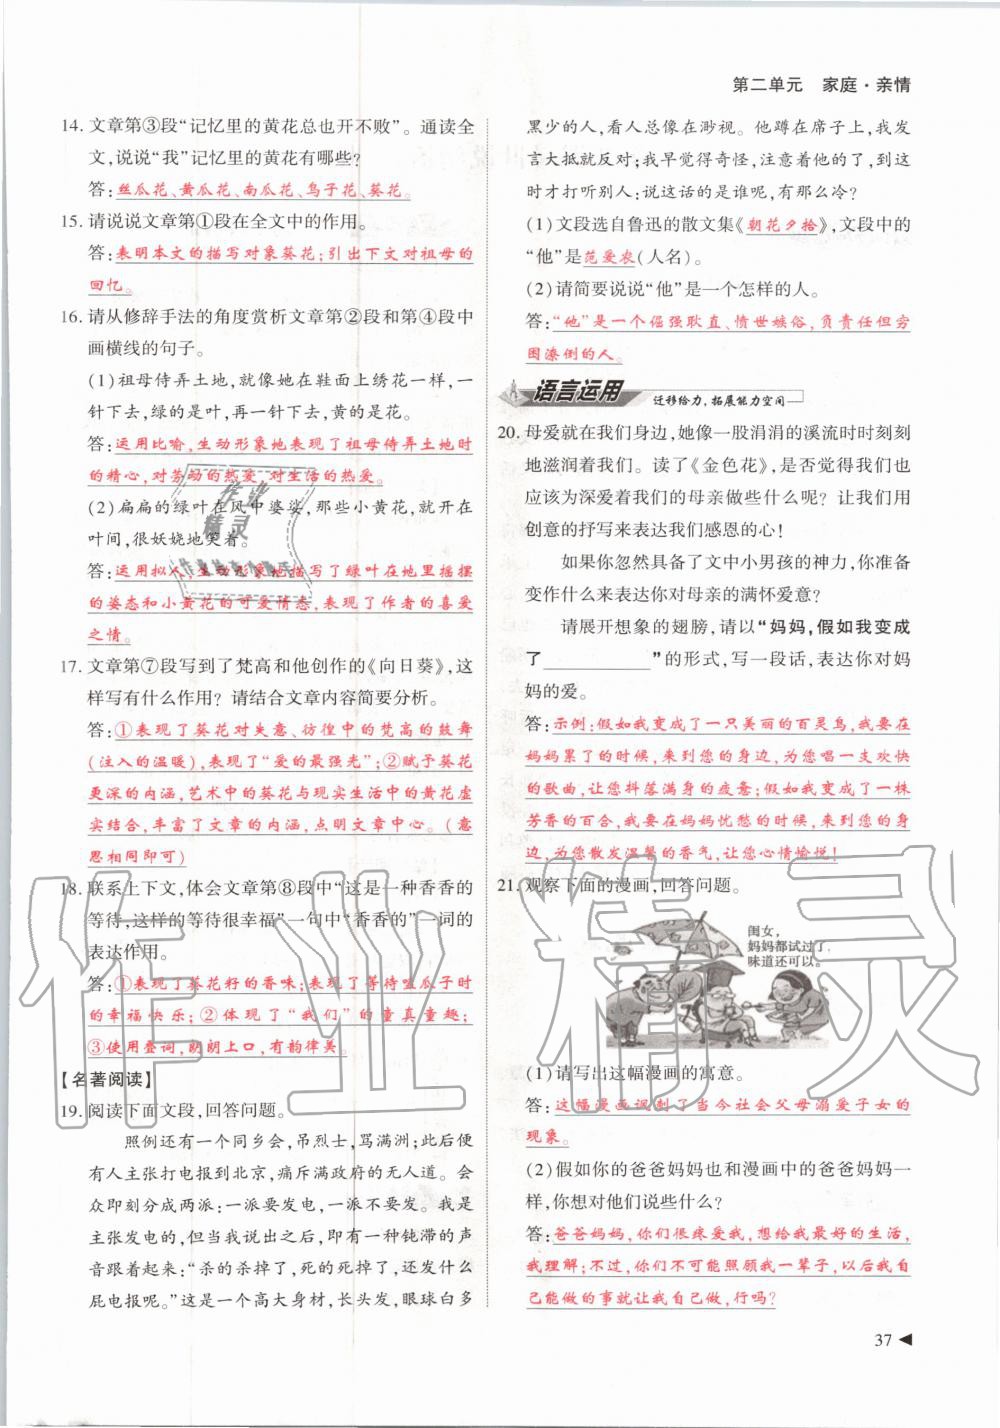 第二单元　家庭·亲情
14. 文章第③段“记忆里的黄花总也开不败”。通读全
文,说说“我”记忆里的黄花有哪些?
答:丝瓜花、黄瓜花、南瓜花、鸟子花、葵花。
15. 请说说文章第①段在全文中的作用。
答:表明本文的描写对象葵花;引出下文对祖母的
回忆。
16. 请从修辞手法的角度赏析文章第②段和第④段中
画横线的句子。
(1)祖母侍弄土地,就像她在鞋面上绣花一样,一
针下去,绿的是叶,再一针下去,黄的是花。
答:运用比喻,生动形象地表现了祖母侍弄土地时
的精心,对劳动的热爱,对生活的热爱。
(2)扁扁的绿叶在风中婆娑,那些小黄花,就开在
叶间,很妖娆地笑着。
答:运用拟人,生动形象地描写了绿叶在地里摇摆
的姿态和小黄花的可爱情态,表现了作者的喜爱
之情。
17. 文章第⑦段写到了梵高和他创作的《向日葵》,这
样写有什么作用? 请结合文章内容简要分析。
答:①表现了葵花对失意、彷徨中的梵高的鼓舞
(注入的温暖),表现了“爱的最强光”;②赋予葵花
更深的内涵,艺术中的葵花与现实生活中的黄花虚
实结合,丰富了文章的内涵,点明文章中心。(意
思相同即可)
18. 联系上下文,体会文章第⑧段中“这是一种香香的
等待,这样的等待很幸福”一句中“香香的”一词的
表达作用。
答:①表现了葵花籽的香味;表现了等待嗑瓜子时
的幸福快乐;②体现了“我们”的童真童趣;
③使用叠词,朗朗上口,有韵律美。
【名著阅读】
19. 阅读下面文段,回答问题。
照例还有一个同乡会,吊烈士,骂满洲;此后便
有人主张打电报到北京,痛斥满政府的无人道。会
众即刻分成两派:一派要发电,一派不要发。我是
主张发电的,但当我说出之后,即有一种钝滞的声
音跟着起来:“杀的杀掉了,死的死掉了,还发什么
屁电报呢。”这是一个高大身材,长头发,眼球白多
黑少的人,看人总像在渺视。他蹲在席子上,我发
言大抵就反对;我早觉得奇怪,注意着他的了,到这
时才打听别人:说这话的是谁呢,有那么冷?
(1)文段选自鲁迅的散文集《朝花夕拾》,文段中的
“他”是范爱农(人名)。
(2)请简要说说“他”是一个怎样的人。
答:“他”是一个倔强耿直、愤世嫉俗,负责任但穷
困潦倒的人。
语言运用　迁移给力,拓展能力空间
20. 母爱就在我们身边,她像一股涓涓的溪流时时刻刻
地滋润着我们。读了《金色花》,是否觉得我们也
应该为深爱着我们的母亲做些什么呢? 让我们用
创意的抒写来表达我们感恩的心!
如果你忽然具备了文中小男孩的神力,你准备
变作什么来表达你对母亲的满怀爱意?
请展开想象的翅膀,请以“妈妈,假如我变成
了__________”的形式,写一段话,表达你对妈
妈的爱。
答:示例:假如我变成了一只美丽的百灵鸟,我要在
妈妈累了的时候,来到您的身边,为您唱一支欢快
的歌曲,让您抖落满身的疲惫;假如我变成了一株
芳香的百合,我要在妈妈忧愁的时候,来到您的身
边,为您散发温馨的香气,让您心情愉悦!
21. 观察下面的漫画,回答问题。
闺女,
妈妈都试过了,
味道还可以。
(1)请写出这幅漫画的寓意。
答:这幅漫画讽刺了当今社会父母溺爱子女的
现象。
(2)假如你的爸爸妈妈也和漫画中的爸爸妈妈一
样,你想对他们说些什么?
答:爸爸妈妈,你们很疼爱我,想给我最好的生活,
我理解;不过,你们不可能照顾我一辈子,以后我自
己能做的事就让我自己做,行吗?
37
作业精灵
作业
精灵